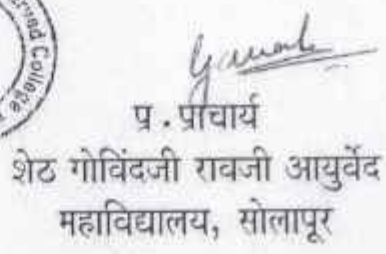 College
प्र . प्राचार्य
शेठ गोविंदजी रावजी आयुर्वेद
महाविद्यालय, सोलापूर